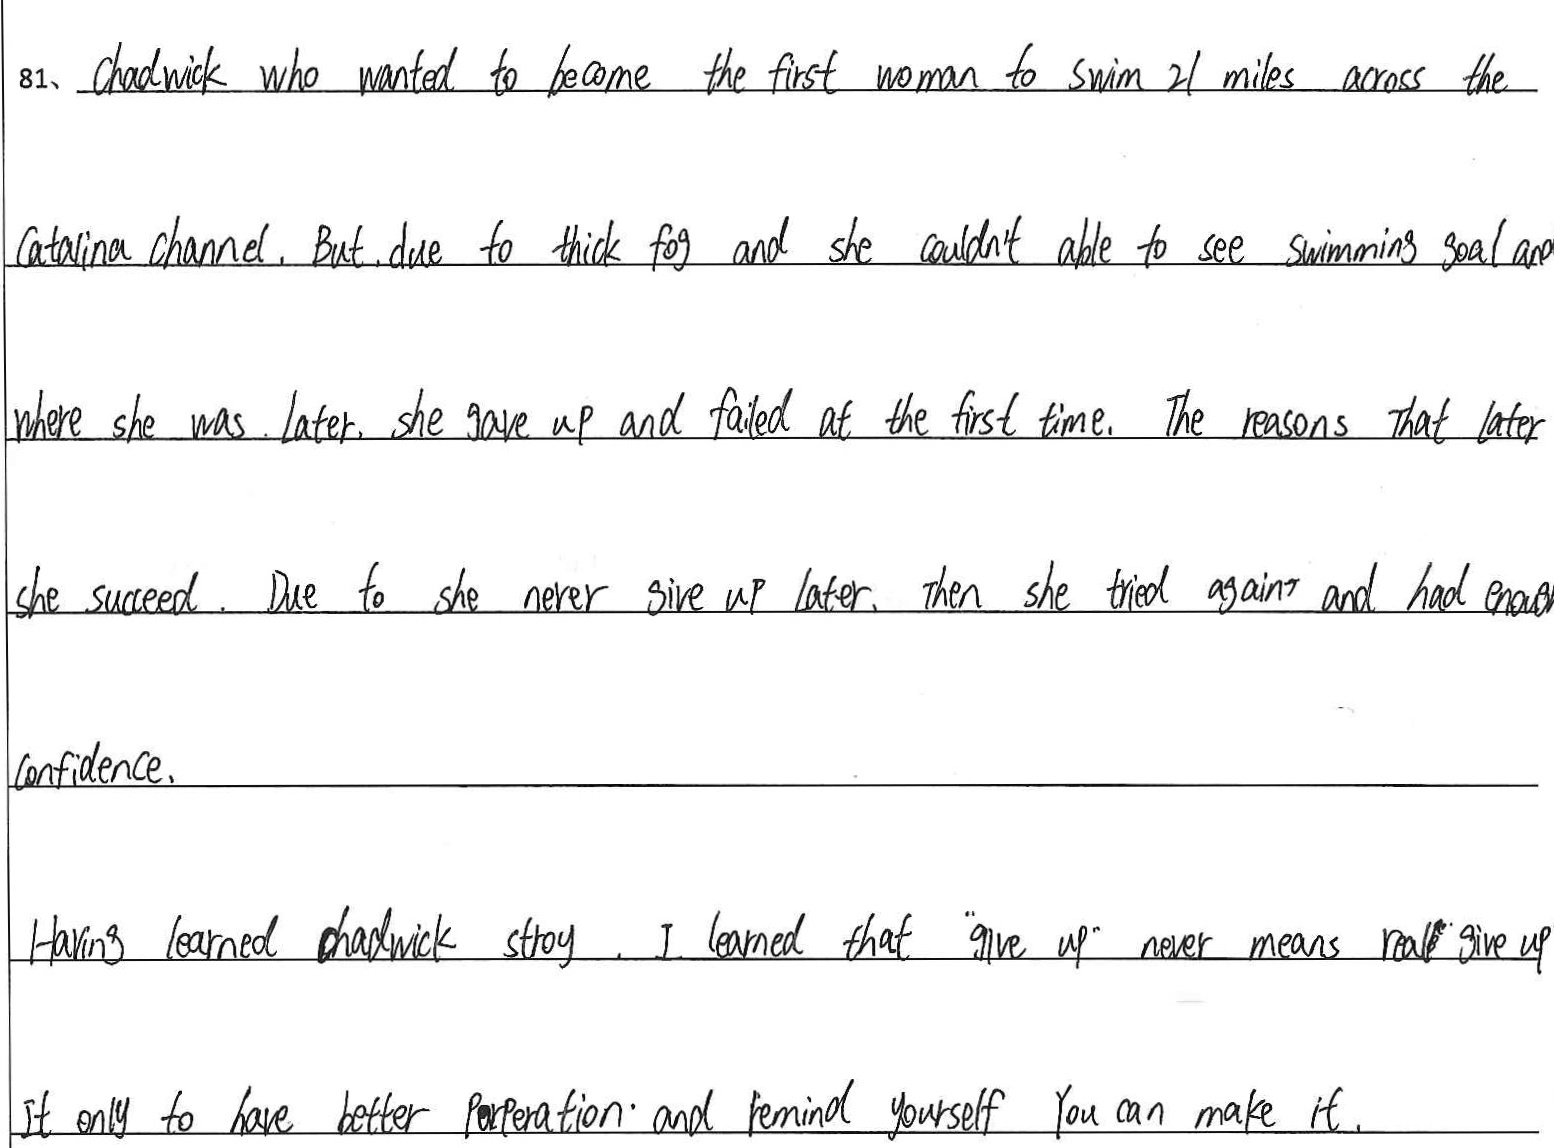 81、 Chadwick who wanted to become the first woman to swim 21 miles across the
Catalina channel. But due to thick fog and she couldn't able to see swimming goal and
where she was. Later, she gave up and failed at the first time. The reasons that later
she succeed. Due to she never give up later. Then she tried again and had enough
confidence.
Having learned chadwick stroy. I learned that "give up" never means real give up
It only to have better perperation. and remind yourself you can make it.